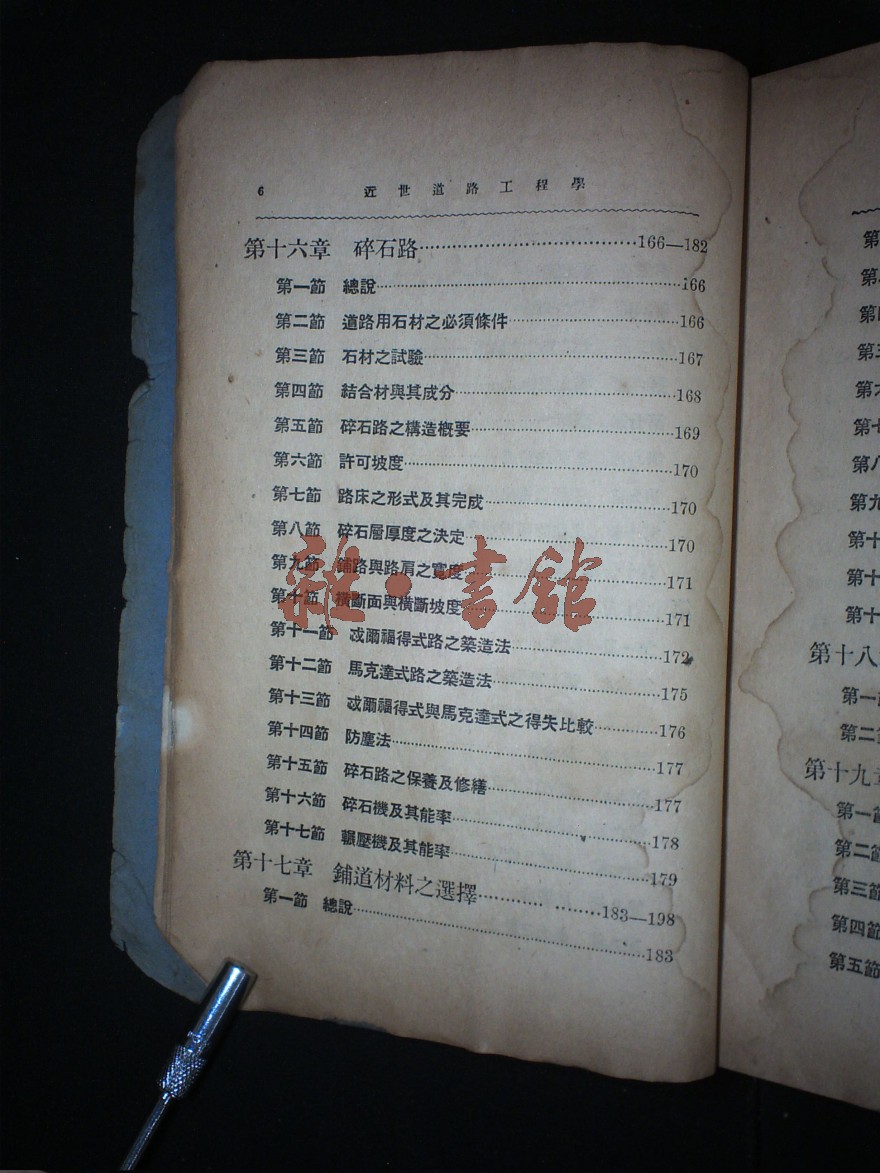 6 近世道路工程學
第十六章 碎石路……166—182
第一節 總說……166
第二節 道路用石材之必須條件……166
第三節 石材之試驗……167
第四節 結合材與其成分……168
第五節 碎石路之構造概要……169
第六節 許可坡度……170
第七節 路床之形式及其完成……170
第八節 碎石層厚度之決定……170
第九節 鋪路與路肩之寬度……171
第十節 橫斷面與橫斷坡度……171
第十一節 忒爾福得式路之築造法……172
第十二節 馬克達式路之築造法……175
第十三節 忒爾福得式與馬克達式之得失比較……176
第十四節 防塵法……177
第十五節 碎石路之保養及修繕……177
第十六節 碎石機及其能率……178
第十七節 輾壓機及其能率……179
第十七章 鋪道材料之選擇……183—198
第一節 總說……183
雜·書館
第十八
第一
第二
第十九章
第一
第二
第三節
第四節
第五節